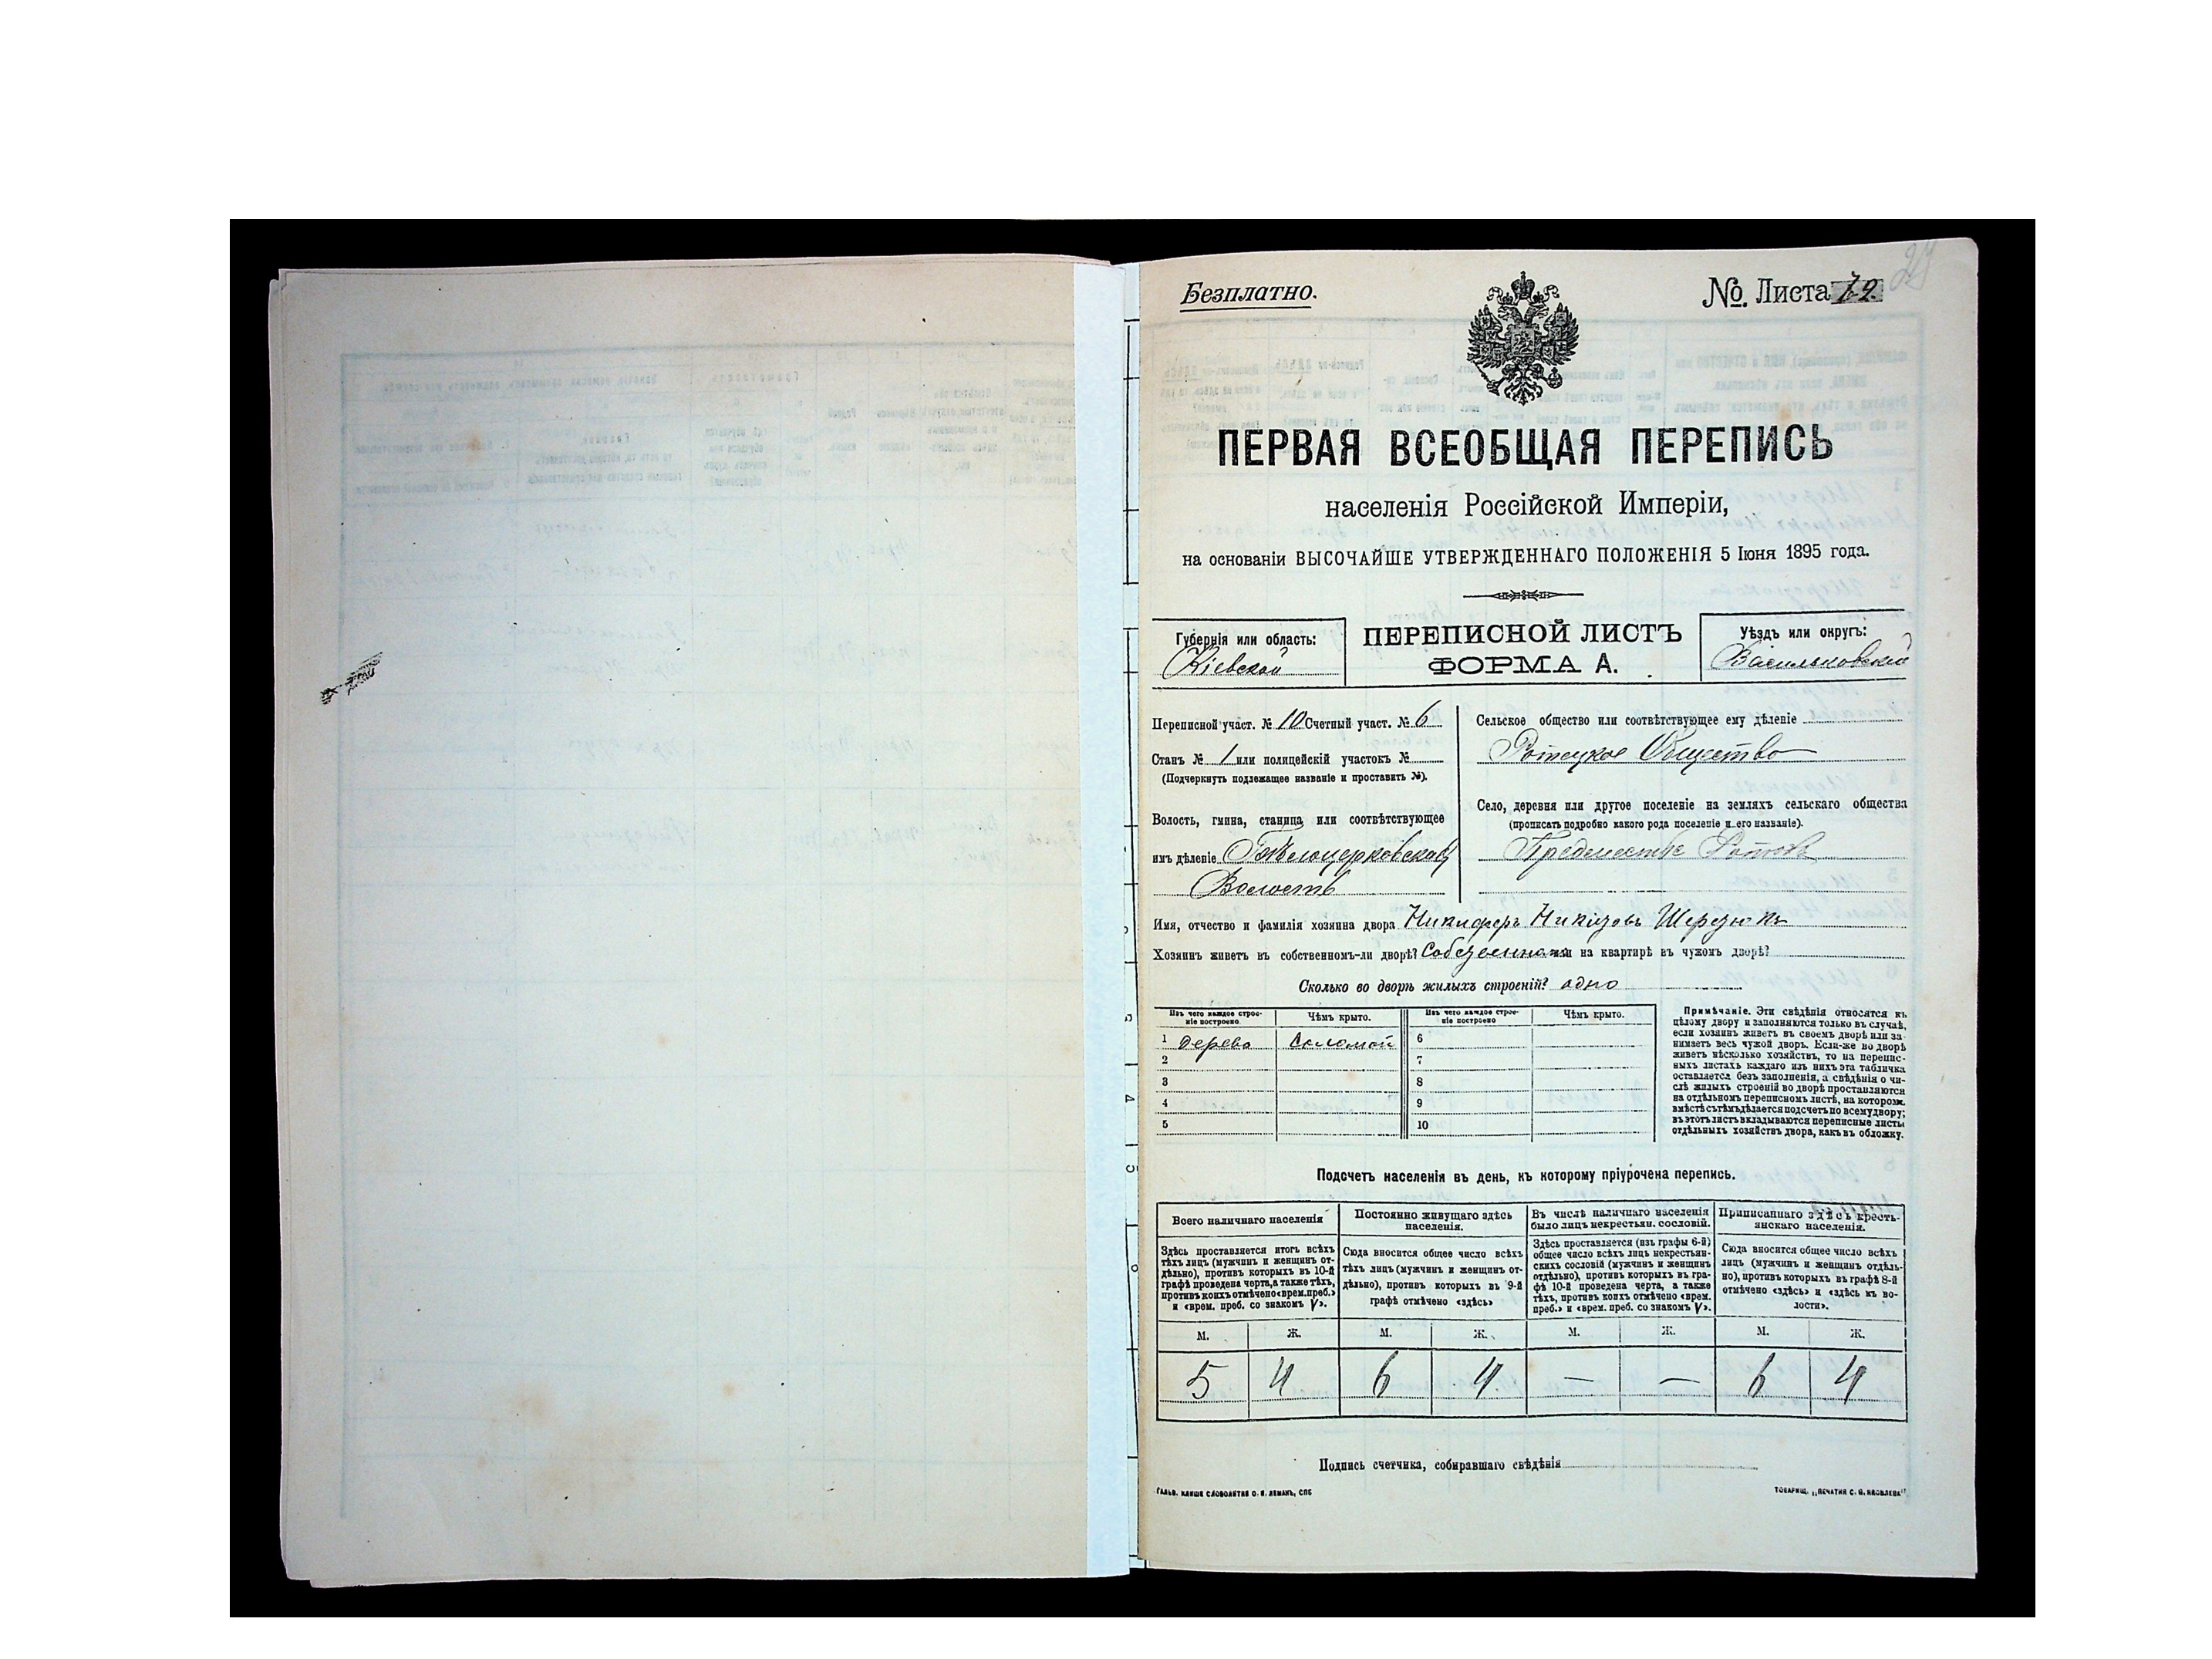 Безплатно.
№. Листа
ПЕРВАЯ ВСЕОБЩАЯ ПЕРЕПИСЬ
населенія Россійской Имперіи,
на основаніи ВЫСОЧАЙШЕ УТВЕРЖДЕННАГО ПОЛОЖЕНІЯ 5 Іюня 1895 года.
Губернія или область:
Кіевской
ПЕРЕПИСНОЙ ЛИСТЪ
ФОРМА А.
Уѣздъ или округъ:
Васильковскій
Переписной участ. № 10 Счетный участ. № 6
Станъ № 1 или полицейскій участокъ №
(Подчеркнуть подлежащее названіе и проставить №).
Волость, гмина, станица или соотвѣтствующее
имъ дѣленіе Бѣлоцерковской
Волость
Сельское общество или соотвѣтствующее ему дѣленіе
Ротецкое Общество
Село, деревня или другое поселеніе на земляхъ сельскаго общества
(прописать подробно какого рода поселеніе и его названіе).
Предместье
Имя, отчество и фамилія хозяина двора Никифоръ Шерзюкъ
Хозяинъ живетъ въ собственномъ-ли дворѣ? или на квартирѣ въ чужомъ дворѣ?
Сколько во дворѣ жилыхъ строеній? одно
Изъ чего каждое строе-
ніе построено.
Чѣмъ крыто.
Изъ чего каждое строе-
ніе построено
Чѣмъ крыто.
1 дерева Соломой 6
2 7
3 8
4 9
5 10
Примѣчаніе. Эти свѣдѣнія относятся къ
цѣлому двору и заполняются только въ случаѣ,
если хозяинъ живетъ въ своемъ дворѣ или за-
нимаетъ весь чужой дворъ. Если-же во дворѣ
живетъ нѣсколько хозяйствъ, то на перепис-
ныхъ листахъ каждаго изъ нихъ эта табличка
оставляется безъ заполненія, а свѣдѣнія о чи-
слѣ жилыхъ строеній во дворѣ проставляются
на отдѣльномъ переписномъ листѣ, на которомъ
вмѣстѣ съ тѣмъ дѣлается подсчетъ по всему двору;
въ этотъ листъ вкладываются переписные листы
отдѣльныхъ хозяйствъ двора, какъ въ обложку.
Подсчетъ населенія въ день, къ которому пріурочена перепись.
Всего наличнаго населенія
Здѣсь проставляется итогъ всѣхъ
тѣхъ лицъ (мужчинъ и женщинъ от-
дѣльно), противъ которыхъ въ 10-й
графѣ проведена черта, а также тѣхъ,
противъ коихъ отмѣчено «врем. преб.»
и «врем. преб. со знакомъ V».
Постоянно живущаго здѣсь
населенія.
Сюда вносится общее число всѣхъ
тѣхъ лицъ (мужчинъ и женщинъ от-
дѣльно), противъ которыхъ въ 9-й
графѣ отмѣчено «здѣсь»
Въ числѣ наличнаго населенія
было лицъ некрестьян. сословій.
Здѣсь проставляется (изъ графы 6-й)
общее число всѣхъ лицъ некрестьян-
скихъ сословій (мужчинъ и женщинъ
отдѣльно), противъ которыхъ въ гра-
фѣ 10-й проведена черта, а также
тѣхъ, противъ коихъ отмѣчено «врем.
преб.» и «врем. преб. со знакомъ V».
Приписаннаго здѣсь кресть-
янскаго населенія.
Сюда вносится общее число всѣхъ
лицъ (мужчинъ и женщинъ отдѣль-
но), противъ которыхъ въ графѣ 8-й
отмѣчено «здѣсь» и «здѣсь къ во-
лости».
М. Ж. М. Ж. М. Ж. М. Ж.
5 4 6 4 — — 6 4
Подпись счетчика, собиравшаго свѣдѣнія
ГАЛЬВ. КЛИШЕ СЛОВОЛИТНИ О. И. ЛЕМАНЪ, СПБ
ТОВАРИЩ. „ПЕЧАТНЯ С. П. ЯКОВЛЕВА"